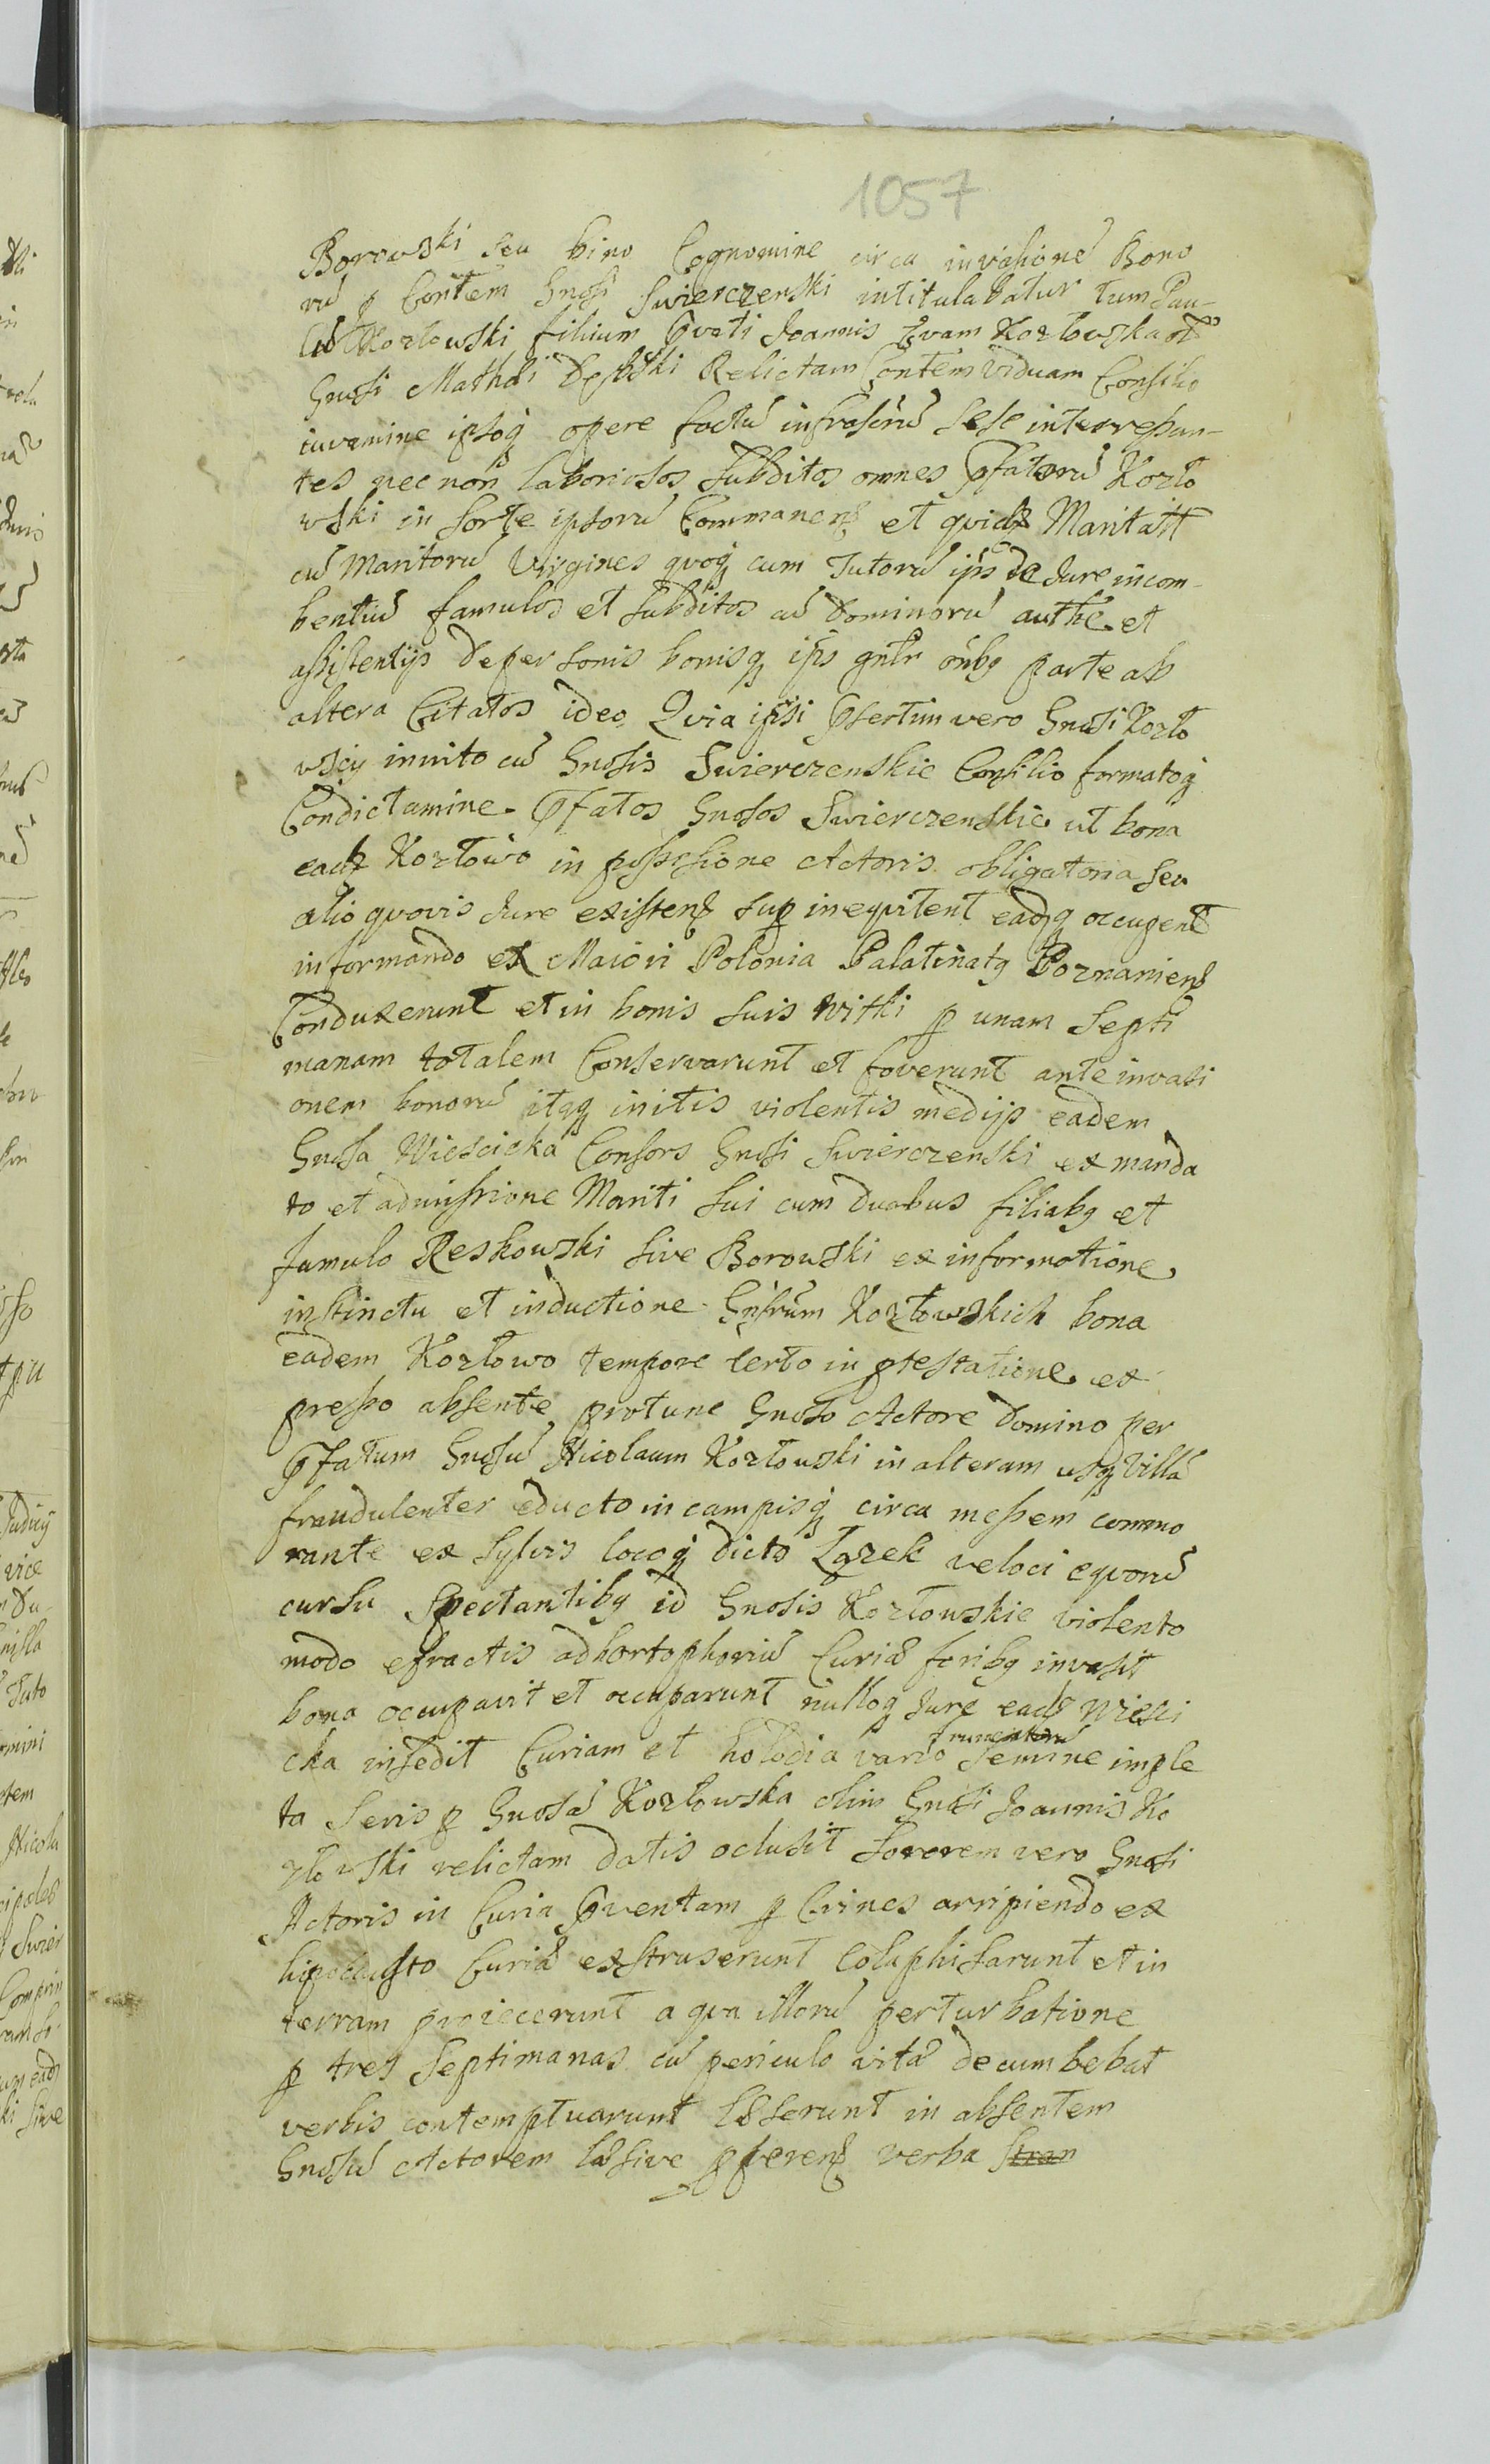 1057
Borowski seu bino Cognomine circa invasionē Bono
rū p Contem Gnosi Swierczenski intitulabatur tum Pau-
Kozłowski filium Joannis Evam Kozłowska
Gnosi Mathæi Relictam Contem Viduam Consilio
iuvamine ipsoq opere factū sese
tes nec non laboriosos subditos omnes pfatorū Kozło
wski in sorte ipsorū Commanen et quidē Maritatt
cū Maritorū Virgines quoq cum Tutorū ipis de Jure incom-
bentiū famulos et subditos cū Dominorū authē et
assistentijs de personis bonisq ipis gnlr onibg parte ab
altera Citatos ideo Quia ipsi psertim vero Gnosi Kozło
wscy innito cū Gnosis Swierczenskie Consilio formatoq
Condictamine pfatos Gnosos Swierczenskie ut bona
eadē Kozłowo in possessione Actoris obligatoria seu
alio quovis Jure existen sup inequitent eadq occupent
informando ex Maiori Polonia Palatinatg Poznanien
Conduxerunt et in bonis suis Witki p unam Septi
manam totalem Conservarunt et foverunt ante invasi
onem bonorū itaq initis violentis medijs eadem
Gnosa Wiescicka Consors Gnosi Swierczenski ex manda
to et admissione Mariti sui cum duabus filiabg et
famulo Reskowski sive Borowski ex informatione
instinctu et inductione Kozłowskich bona
eadem Kozłowo tempore certo in ptestatione ex
presso absente protunc Gnoso Actore Domino per
pfatum Gnosū Nicolaum Kozłowski in alteram usq Villā
fraudulenter educto in campisq circa messem commo
rante ex sylvis locoq dicto Łazek veloci equorū
cursu spectantibg id Gnosis Kozłowskie violento
modo efractis ad hortophoriū Curiæ foribg invasit
bona occupavit et occuparunt nulloq Jure eadē Wiesci
cka insedit Curiam et holodia vario frumentorū semine imple
ta seris p Gnosā Kozłowska olim Gnosi Joannis Ko
złowski relictam datis oclusit sororem vero Gnosi
Actoris in Curia pventam p Crines arripiendo ex
hipocausto Curiæ extruserunt Colaphisarunt et in
terram proiecerunt a qua illorū perturbatione
p tres Septimanas cū periculo vitæ decumbebat
verbis contemptuarunt læserunt in absentem
Gnosū Actorem læsive pferen verba stran